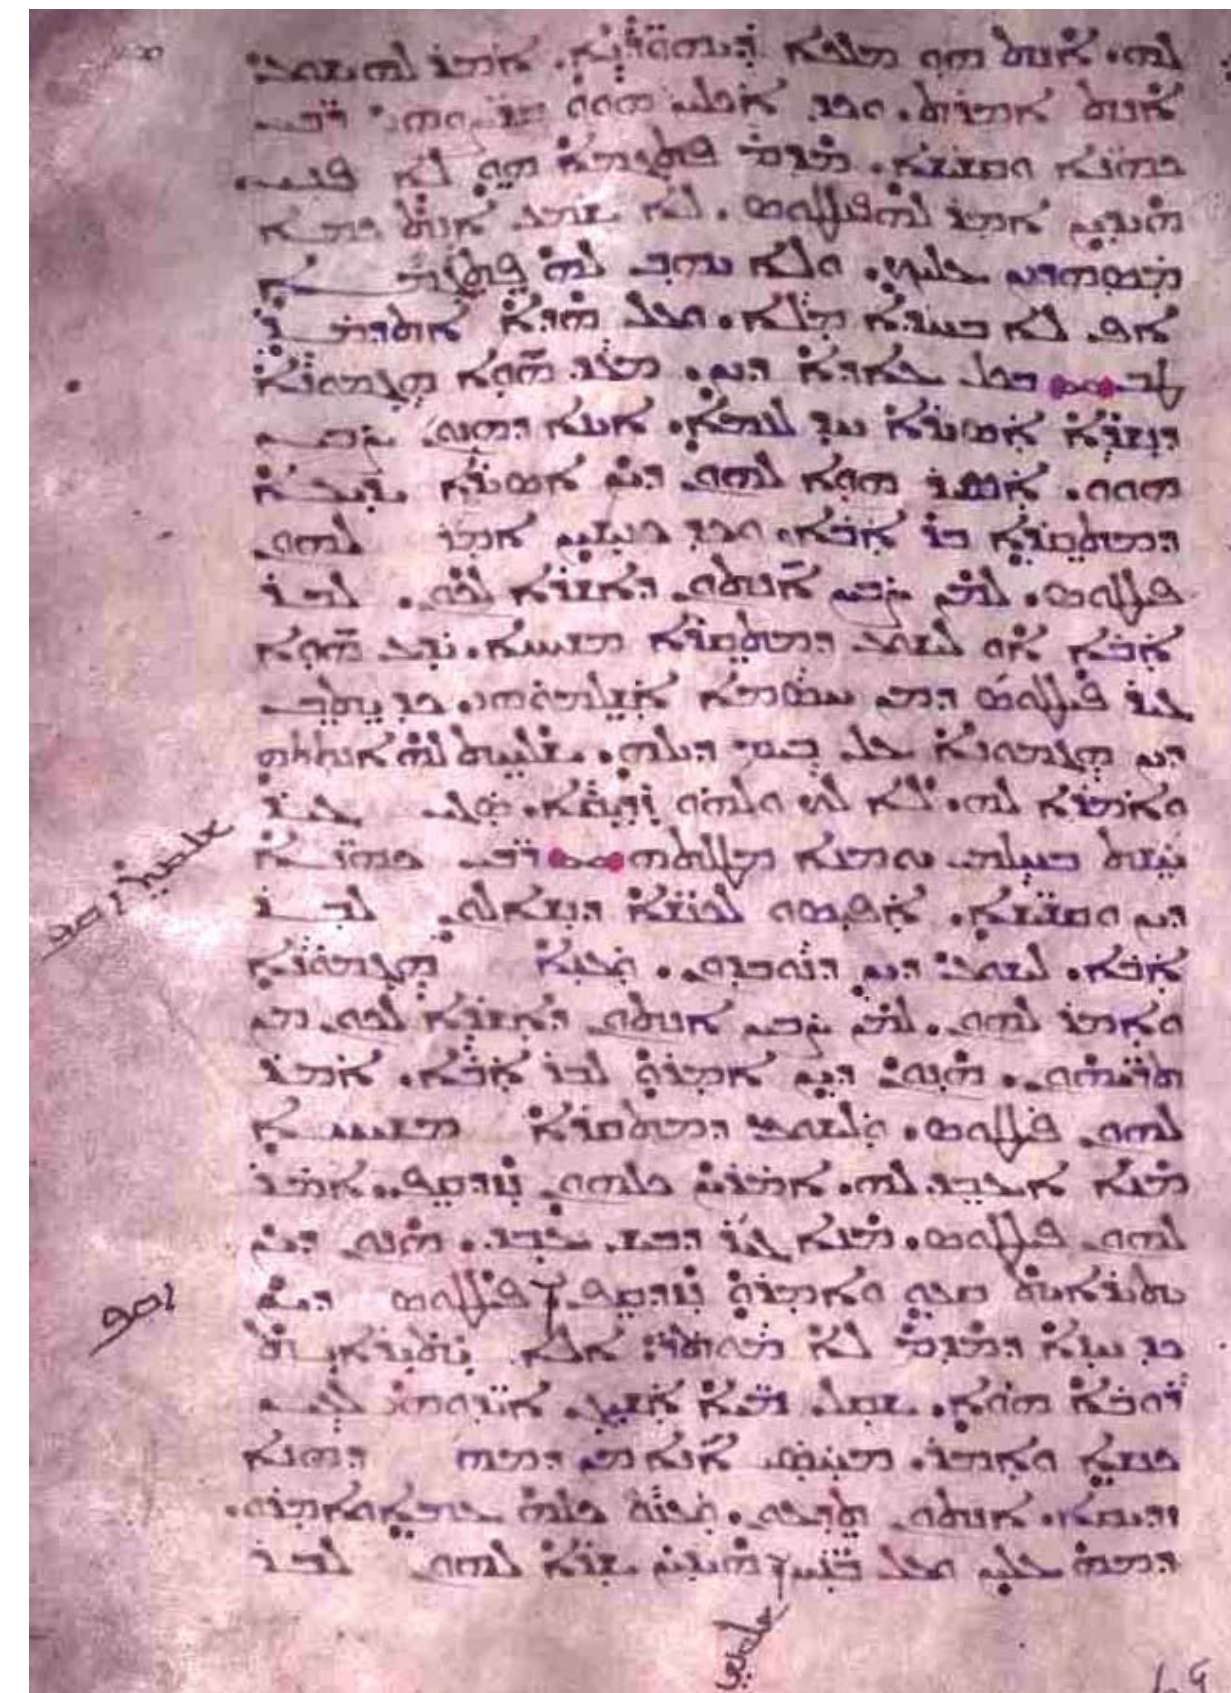 ܠܗ. ܐܢܬ ܗܘ ܡܠܟܐ ܕܝܗܘܕܝܐ. ܐܡܪ ܠܗ ܝܫܘܥ
ܐܢܬ ܐܡܪܬ. ܘܟܕ ܐܟܠܝܢ ܗܘܘ ܩܪܨܘܗܝ ܪܒܝ
ܟܗܢܐ ܘܩܫܝܫܐ. ܡܕܡ ܦܬܓܡܐ ܗܘ ܠܐ ܦܢܝ
ܗܝܕܝܢ ܐܡܪ ܠܗ ܦܝܠܛܘܣ. ܠܐ ܫܡܥ ܐܢܬ ܟܡܐ
ܡܣܗܕܝܢ ܥܠܝܟ. ܘܠܐ ܝܗܒ ܠܗ ܦܬܓܡܐ
ܐܦ ܠܐ ܒܚܕܐ ܡܠܐ. ܘܥܠ ܗܕܐ ܐܬܕܡܪ
ܛܒ ܒܟܠ ܥܐܕܐ ܕܝܢ. ܡܥܕ ܗܘܐ ܗܓܡܘܢܐ
ܕܢܫܪܐ ܐܣܝܪܐ ܚܕ ܠܥܡܐ. ܐܝܢܐ ܕܗܢܘܢ ܨܒܝܢ
ܗܘܘ. ܐܣܝܪ ܗܘܐ ܠܗܘܢ ܕܝܢ ܐܣܝܪܐ ܝܕܝܥܐ
ܕܡܬܩܪܐ ܒܪ ܐܒܐ. ܘܟܕ ܟܢܝܫܝܢ ܐܡܪ ܠܗܘܢ
ܦܝܠܛܘܣ. ܠܡܢ ܨܒܝܢ ܐܢܬܘܢ ܕܐܫܪܐ ܠܟܘܢ. ܠܒܪ
ܐܒܐ ܐܘ ܠܝܫܘܥ ܕܡܬܩܪܐ ܡܫܝܚܐ. ܝܕܥ ܗܘܐ
ܓܝܪ ܦܝܠܛܘܣ ܕܡܢ ܚܣܡܐ ܐܫܠܡܘܗܝ. ܟܕ ܝܬܒ
ܕܝܢ ܗܓܡܘܢܐ ܥܠ ܒܝܡ ܕܝܠܗ. ܫܠܚܬ ܠܗ ܐܢܬܬܗ
ܘܐܡܪܐ ܠܗ. ܠܐ ܠܟ ܘܠܗܘ ܙܕܝܩܐ. ܣܓܝ ܓܝܪ
ܚܫܬ ܒܚܠܡܝ ܝܘܡܢܐ ܡܛܠܬܗ ܪܒܝ ܟܗܢܐ
ܕܝܢ ܘܩܫܝܫܐ. ܐܦܝܣܘ ܠܟܢܫܐ ܕܢܫܐܠܘܢ ܠܒܪ
ܐܒܐ. ܠܝܫܘܥ ܕܝܢ ܕܢܘܒܕܘܢ. ܘܥܢܐ ܗܓܡܘܢܐ
ܘܐܡܪ ܠܗܘܢ. ܠܡܢ ܨܒܝܢ ܐܢܬܘܢ ܕܐܫܪܐ ܠܟܘܢ ܡܢ
ܬܪܝܗܘܢ. ܗܢܘܢ ܕܝܢ ܐܡܪܘ ܠܒܪ ܐܒܐ. ܐܡܪ
ܠܗܘܢ ܦܝܠܛܘܣ. ܘܠܝܫܘܥ ܕܡܬܩܪܐ ܡܫܝܚܐ
ܡܢܐ ܐܥܒܕ ܠܗ. ܐܡܪܝܢ ܟܠܗܘܢ ܢܙܕܩܦ. ܐܡܪ
ܠܗܘܢ ܦܝܠܛܘܣ. ܡܢܐ ܓܝܪ ܕܒܝܫ ܥܒܕ. ܗܢܘܢ ܕܝܢ
ܝܬܝܪܐܝܬ ܩܥܘ ܘܐܡܪܘ ܢܙܕܩܦ. ܦܝܠܛܘܣ ܕܝܢ
ܟܕ ܚܙܐ ܕܡܕܡ ܠܐ ܡܘܬܪ: ܐܠܐ ܝܬܝܪܐܝܬ
ܪܘܒܐ ܗܘܐ. ܫܩܠ ܡܝܐ ܐܫܝܓ ܐܝܕܘܗܝ ܠܥܝܢ
ܟܢܫܐ ܘܐܡܪ. ܡܚܣܝ ܐܢܐ ܡܢ ܕܡܗ ܕܗܢܐ
ܙܕܝܩܐ. ܐܢܬܘܢ ܬܕܥܘܢ. ܘܥܢܘ ܟܠܗ ܥܡܐ ܘܐܡܪܘ.
ܕܡܗ ܥܠܝܢ ܘܥܠ ܒܢܝܢ ܗܝܕܝܢ ܫܪܐ ܠܗܘܢ ܠܒܪ